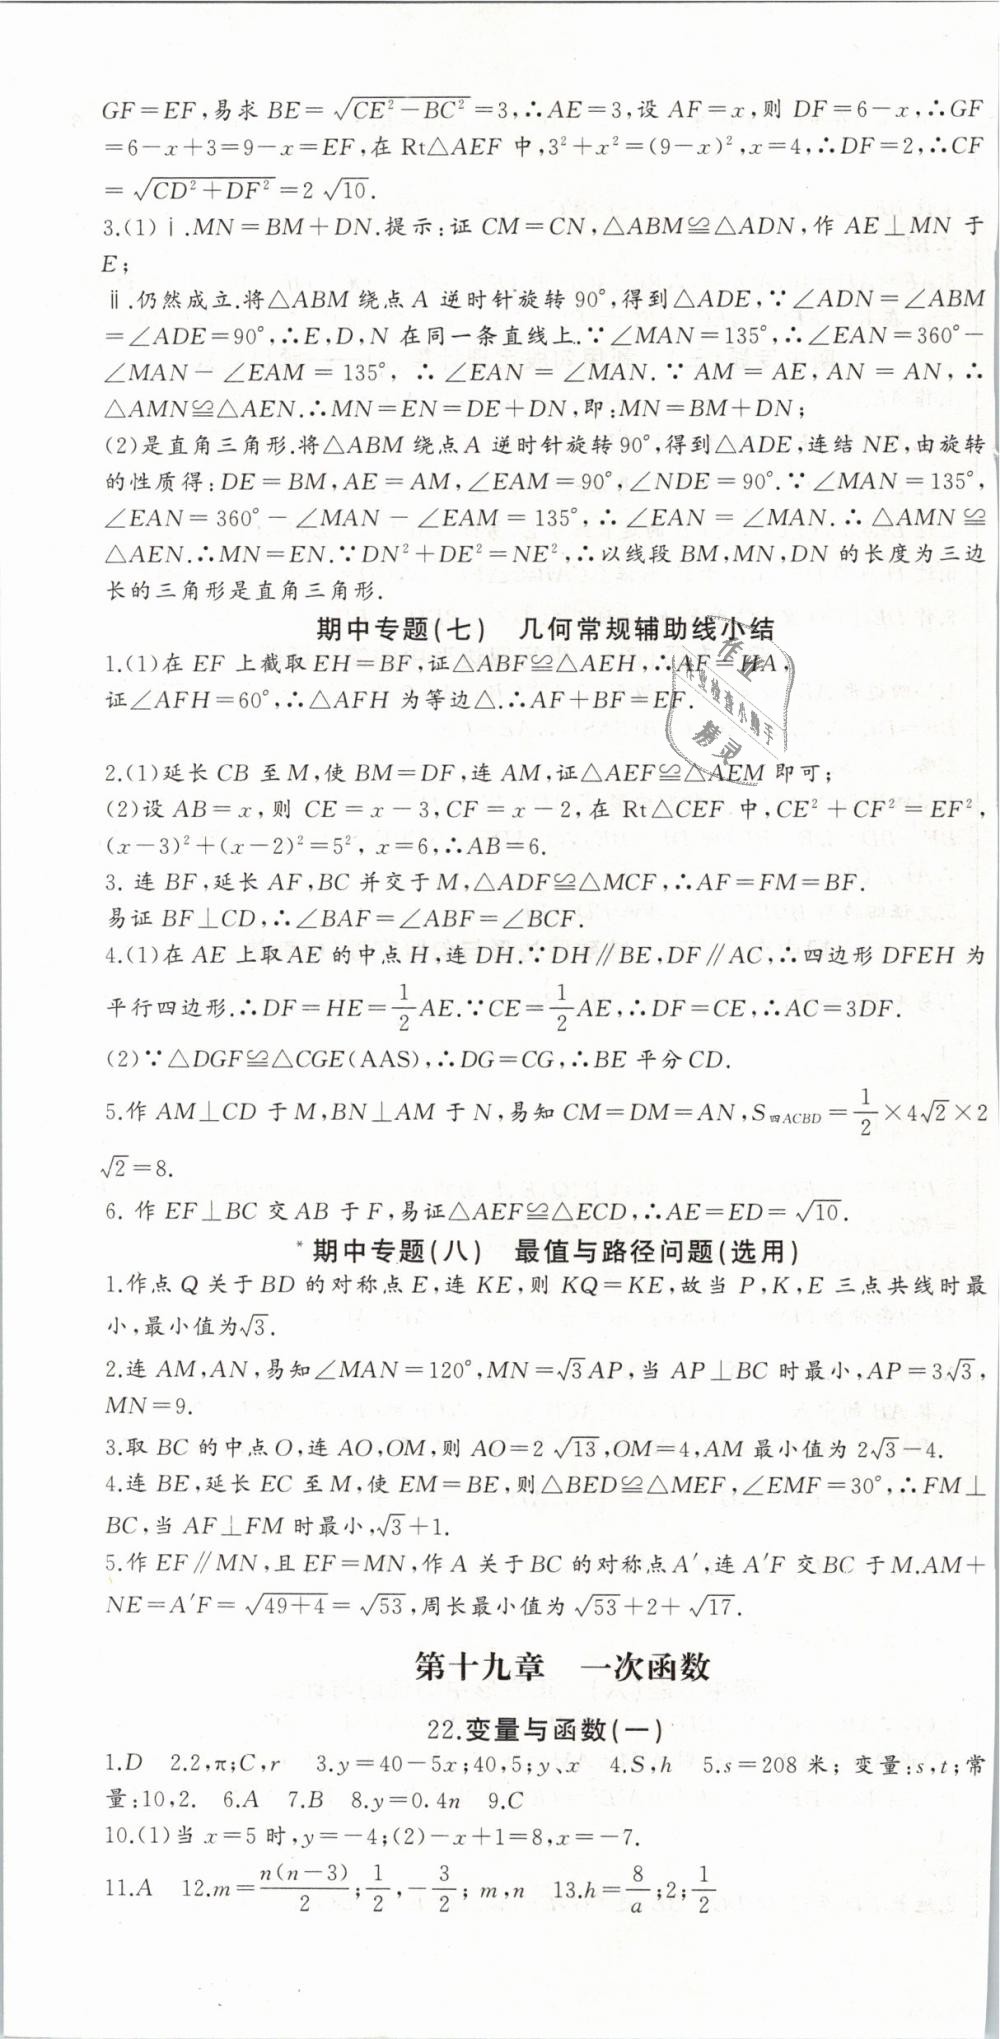 GF=EF,易求 BE=√(CE²-BC²)=3,∴AE=3,设 AF=x,则 DF=6-x,∴GF
=6-x+3=9-x=EF,在 Rt△AEF 中,3²+x²=(9-x)²,x=4,∴DF=2,∴CF
=√(CD²+DF²)=2√10.
3.(1)ⅰ.MN=BM+DN.提示:证 CM=CN,△ABM≌△ADN,作 AE⊥MN 于
E;
ⅱ.仍然成立.将△ABM 绕点 A 逆时针旋转 90°,得到△ADE,∵∠ADN=∠ABM
=∠ADE=90°,∴E,D,N 在同一条直线上.∵∠MAN=135°,∴∠EAN=360°-
∠MAN-∠EAM=135°,∴∠EAN=∠MAN.∵AM=AE,AN=AN,∴
△AMN≌△AEN.∴MN=EN=DE+DN,即:MN=BM+DN;
(2)是直角三角形.将△ABM 绕点 A 逆时针旋转 90°,得到△ADE,连结 NE,由旋转
的性质得:DE=BM,AE=AM,∠EAM=90°,∠NDE=90°.∵∠MAN=135°,
∠EAN=360°-∠MAN-∠EAM=135°,∴∠EAN=∠MAN.∴△AMN≌
△AEN.∴MN=EN.∵DN²+DE²=NE²,∴以线段 BM,MN,DN 的长度为三边
长的三角形是直角三角形.
期中专题(七) 几何常规辅助线小结
1.(1)在 EF 上截取 EH=BF,证△ABF≌△AEH,∴AF=HA,
证∠AFH=60°,∴△AFH 为等边△.∴AF+BF=EF.
作业
作业检查小助手
精灵
2.(1)延长 CB 至 M,使 BM=DF,连 AM,证△AEF≌△AEM 即可;
(2)设 AB=x,则 CE=x-3,CF=x-2,在 Rt△CEF 中,CE²+CF²=EF²,
(x-3)²+(x-2)²=5²,x=6,∴AB=6.
3. 连 BF,延长 AF,BC 并交于 M,△ADF≌△MCF,∴AF=FM=BF.
易证 BF⊥CD,∴∠BAF=∠ABF=∠BCF.
4.(1)在 AE 上取 AE 的中点 H,连 DH.∵DH∥BE,DF∥AC,∴四边形 DFEH 为
平行四边形.∴DF=HE=1/2 AE.∵CE=1/2 AE,∴DF=CE,∴AC=3DF.
(2)∵△DGF≌△CGE(AAS),∴DG=CG,∴BE 平分 CD.
5.作 AM⊥CD 于 M,BN⊥AM 于 N,易知 CM=DM=AN,S四ACBD=1/2×4√2×2
√2=8.
6. 作 EF⊥BC 交 AB 于 F,易证△AEF≌△ECD,∴AE=ED=√10.
*期中专题(八) 最值与路径问题(选用)
1.作点 Q 关于 BD 的对称点 E,连 KE,则 KQ=KE,故当 P,K,E 三点共线时最
小,最小值为√3.
2.连 AM,AN,易知∠MAN=120°,MN=√3AP,当 AP⊥BC 时最小,AP=3√3,
MN=9.
3.取 BC 的中点 O,连 AO,OM,则 AO=2√13,OM=4,AM 最小值为 2√3-4.
4.连 BE,延长 EC 至 M,使 EM=BE,则△BED≌△MEF,∠EMF=30°,∴FM⊥
BC,当 AF⊥FM 时最小,√3+1.
5.作 EF∥MN,且 EF=MN,作 A 关于 BC 的对称点 A′,连 A′F 交 BC 于 M.AM+
NE=A′F=√(49+4)=√53,周长最小值为√53+2+√17.
第十九章 一次函数
22.变量与函数(一)
1.D 2.2,π;C,r 3.y=40-5x;40,5;y、x 4.S,h 5.s=208 米;变量:s,t;常
量:10,2. 6.A 7.B 8.y=0.4n 9.C
10.(1)当 x=5 时,y=-4;(2)-x+1=8,x=-7.
11.A 12.m=n(n-3)/2;1/2,-3/2;m,n 13.h=8/a;2;1/2